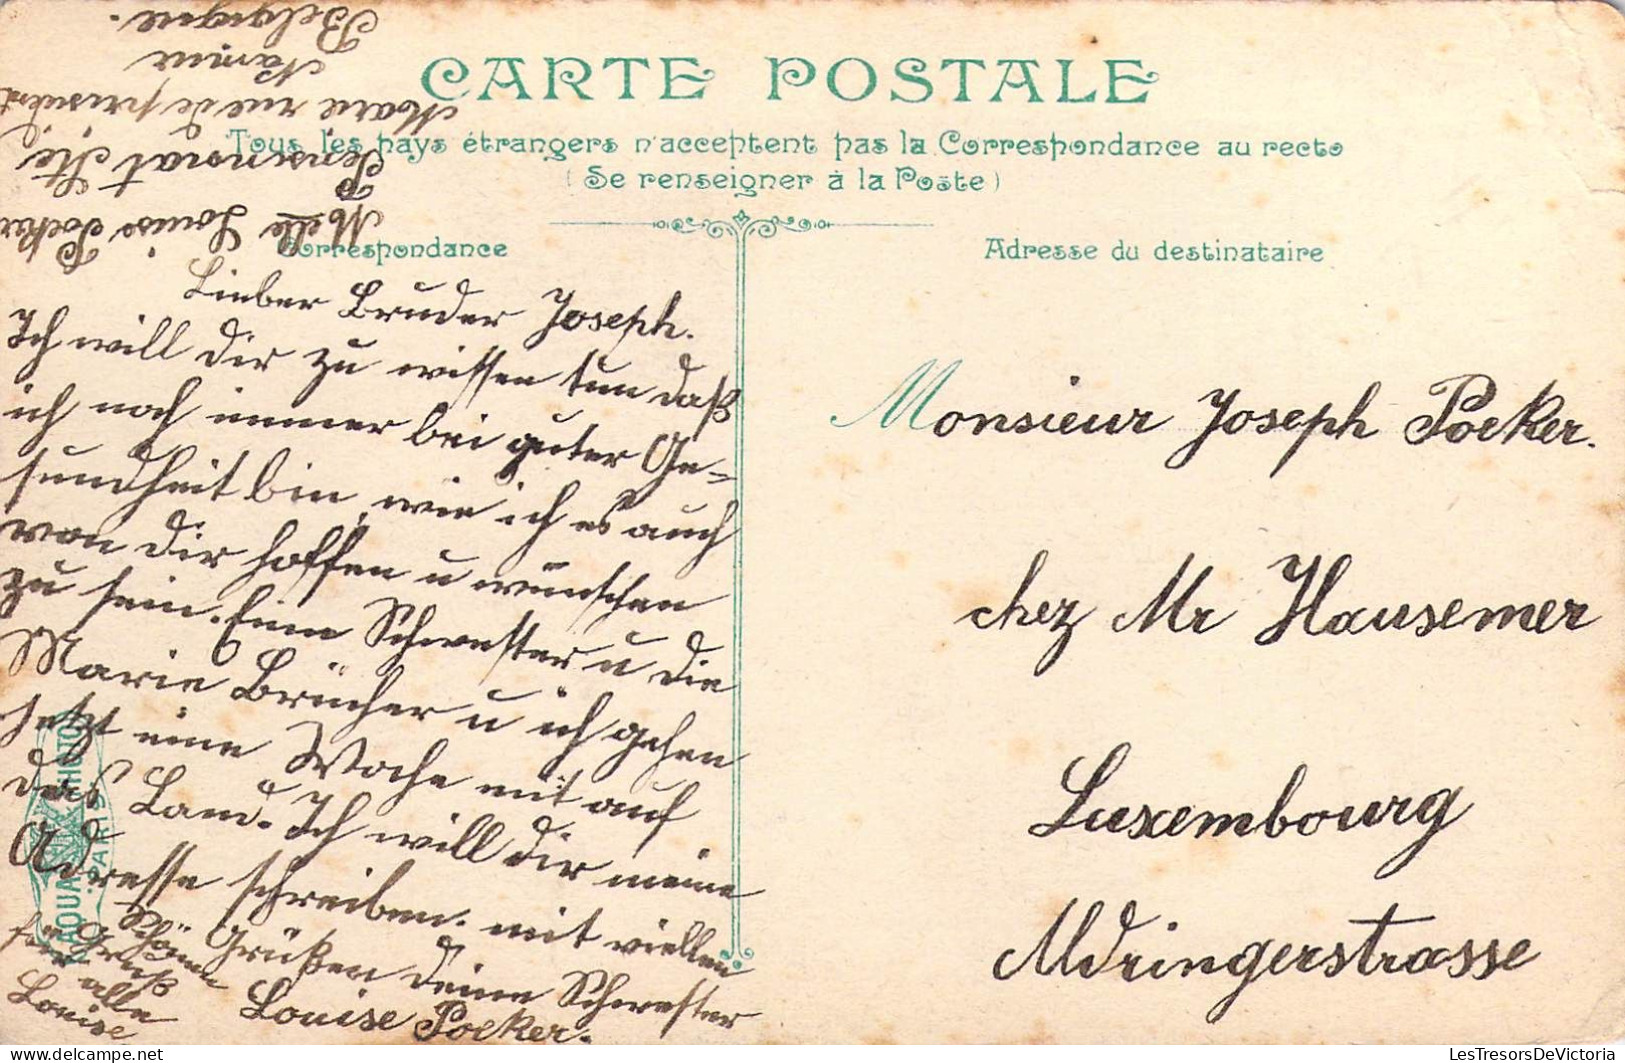 CARTE POSTALE
Tous les pays étrangers n'acceptent pas la Correspondance au recto
(Se renseigner à la Poste)
Correspondance
Adresse du destinataire
Lieber Bruder Joseph.
Ich will dir zu wissen tun daß
ich noch immer bei guter Ge-
sundheit bin, wie ich es auch
von dir hoffen u wünschen
zu sein. Eine Schwester u die
Marie Brücher u ich gehen
jetzt eine Woche mit auf
das Land. Ich will dir meine
Adresse schreiben. mit viellen
Grüßen deine Schwester
Louise Poeker.
Schönen
Gruß
für alle
Louise
Melle Louise Poeker
Pensionat Ste
Marie rue de président
Namur
Belgique.
Monsieur Joseph Poeker.
chez Mr Hausemer
Luxembourg
Aldringerstrasse
PARIS
LesTresorsDeVictoria
www.delcampe.net